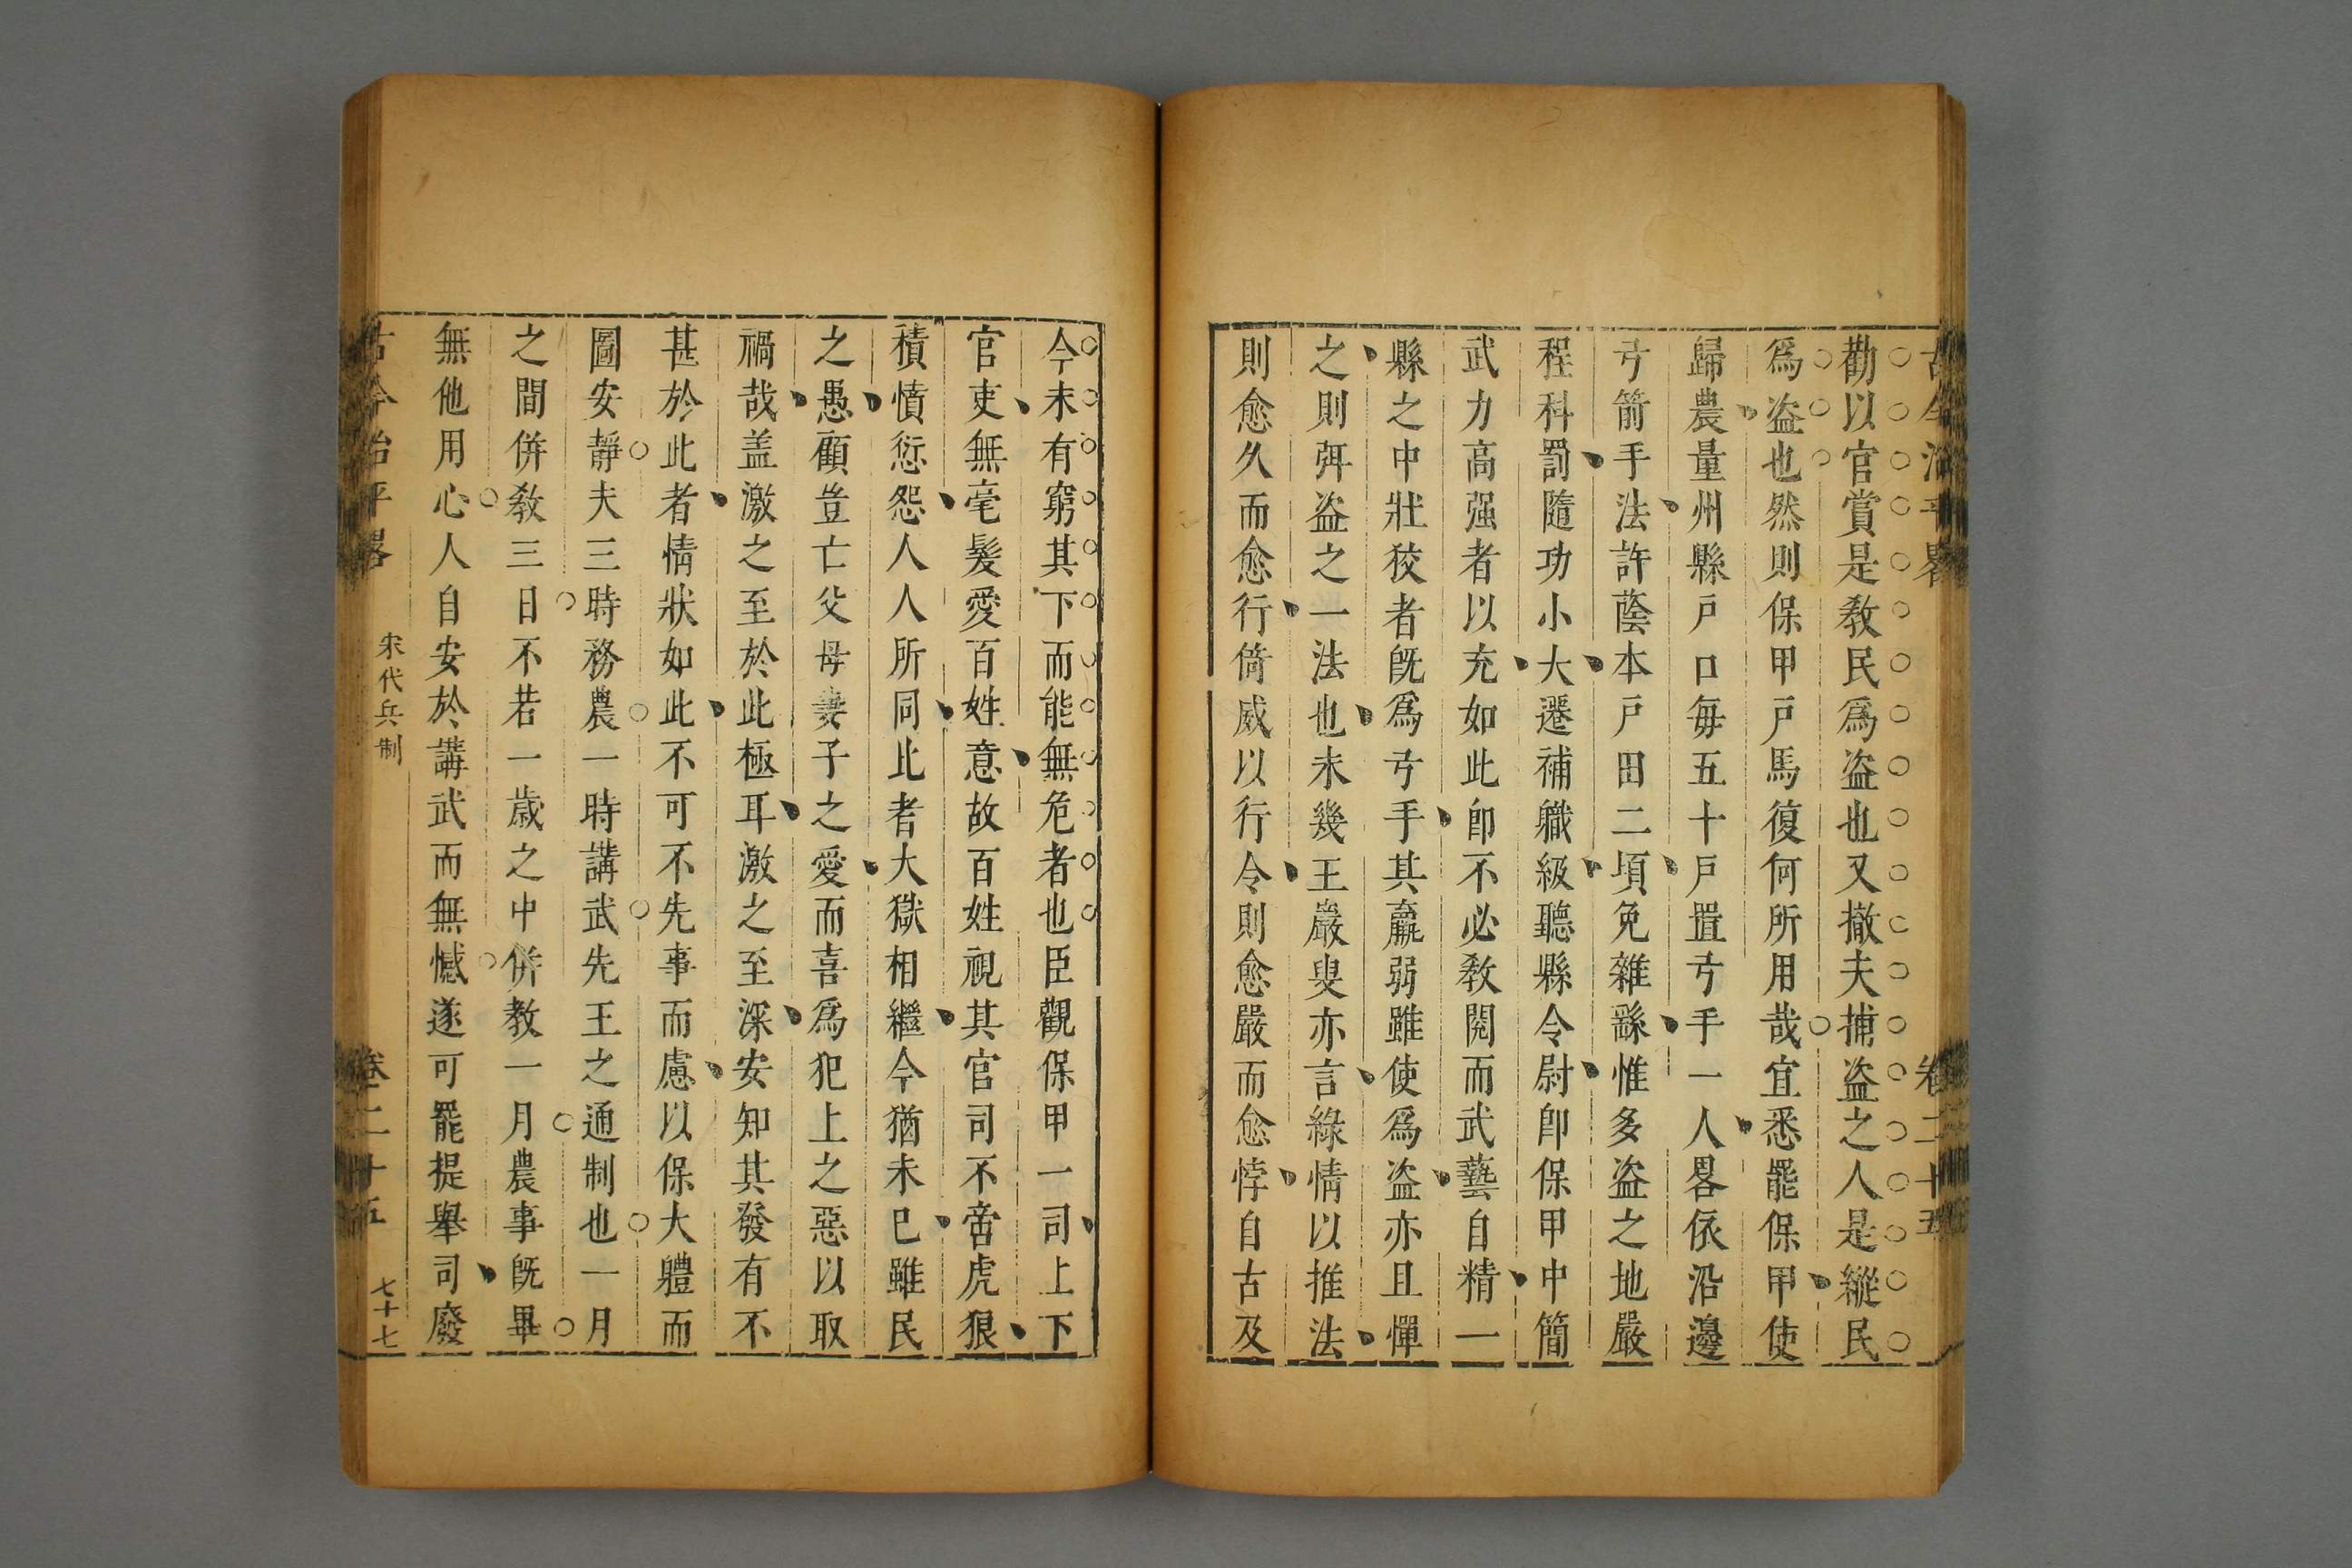 古今治平畧 卷二十五
勸以官賞是教民爲盜也又撤夫捕盜之人是縱民
爲盜也然則保甲戸馬復何所用哉宜悉罷保甲使
歸農量州縣戸口每五十戸置弓手一人畧依沿邊
弓箭手法許蔭本戸田二頃免雜繇惟多盜之地嚴
程科罰隨功小大遷補職級聽縣令尉卽保甲中簡
武力高强者以充如此卽不必教閱而武藝自精一
縣之中壯狡者旣爲弓手其羸弱雖使爲盜亦且憚
之則弭盜之一法也未幾王巖叟亦言綠情以推法
則愈久而愈行倚威以行令則愈嚴而愈悖自古及
今未有窮其下而能無危者也臣觀保甲一司上下
官吏無毫髮愛百姓意故百姓視其官司不啻虎狼
積憤惌怨人人所同比者大獄相繼今猶未已雖民
之愚顧豈亡父母妻子之愛而喜爲犯上之惡以取
禍哉盖激之至於此極耳激之至深安知其發有不
甚於此者情狀如此不可不先事而慮以保大體而
圖安靜夫三時務農一時講武先王之通制也一月
之間併教三日不若一歲之中併教一月農事旣畢
無他用心人自安於講武而無憾遂可罷提舉司廢
古今治平畧 宋代兵制 卷二十五 七十七